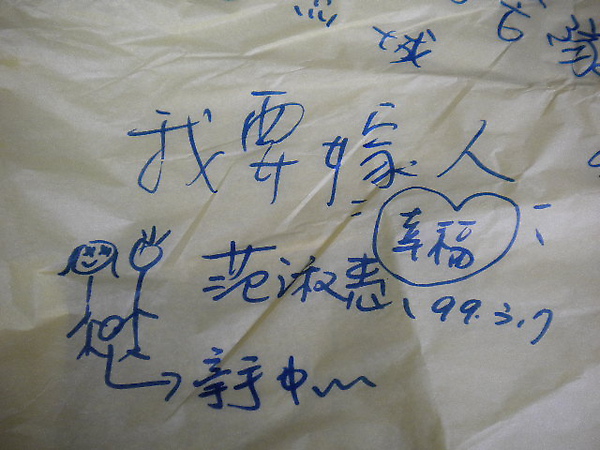 我要嫁人
幸福
范淑惠 99.3.7
手中...